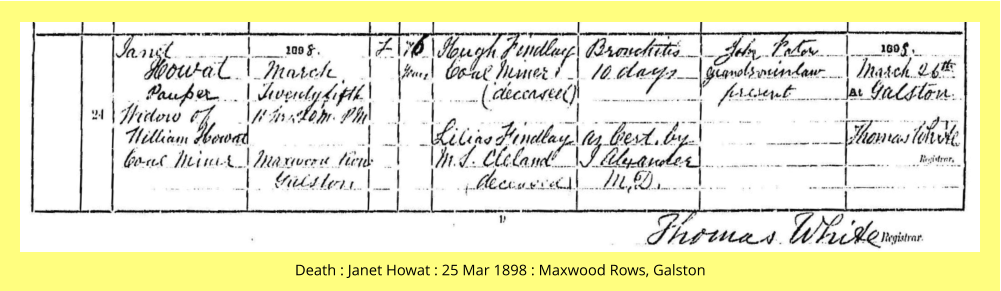 Janet
Howat
Pauper
24
Widow of
William Howat
Coal Miner
1898.
March
Twenty fifth
PM
Maxwood Rows
Galston
F
76
Years
Hugh Findlay
Coal Miner
(deceased)
Lilias Findlay
M.S. Cleland
(deceased)
Bronchitis
10 days
as Cert. by
J Alexander
M.D.
John Paton
grandsoninlaw
present
1898.
March 26th
At Galston
Thomas White
Registrar.
Thomas White Registrar.
Death : Janet Howat : 25 Mar 1898 : Maxwood Rows, Galston